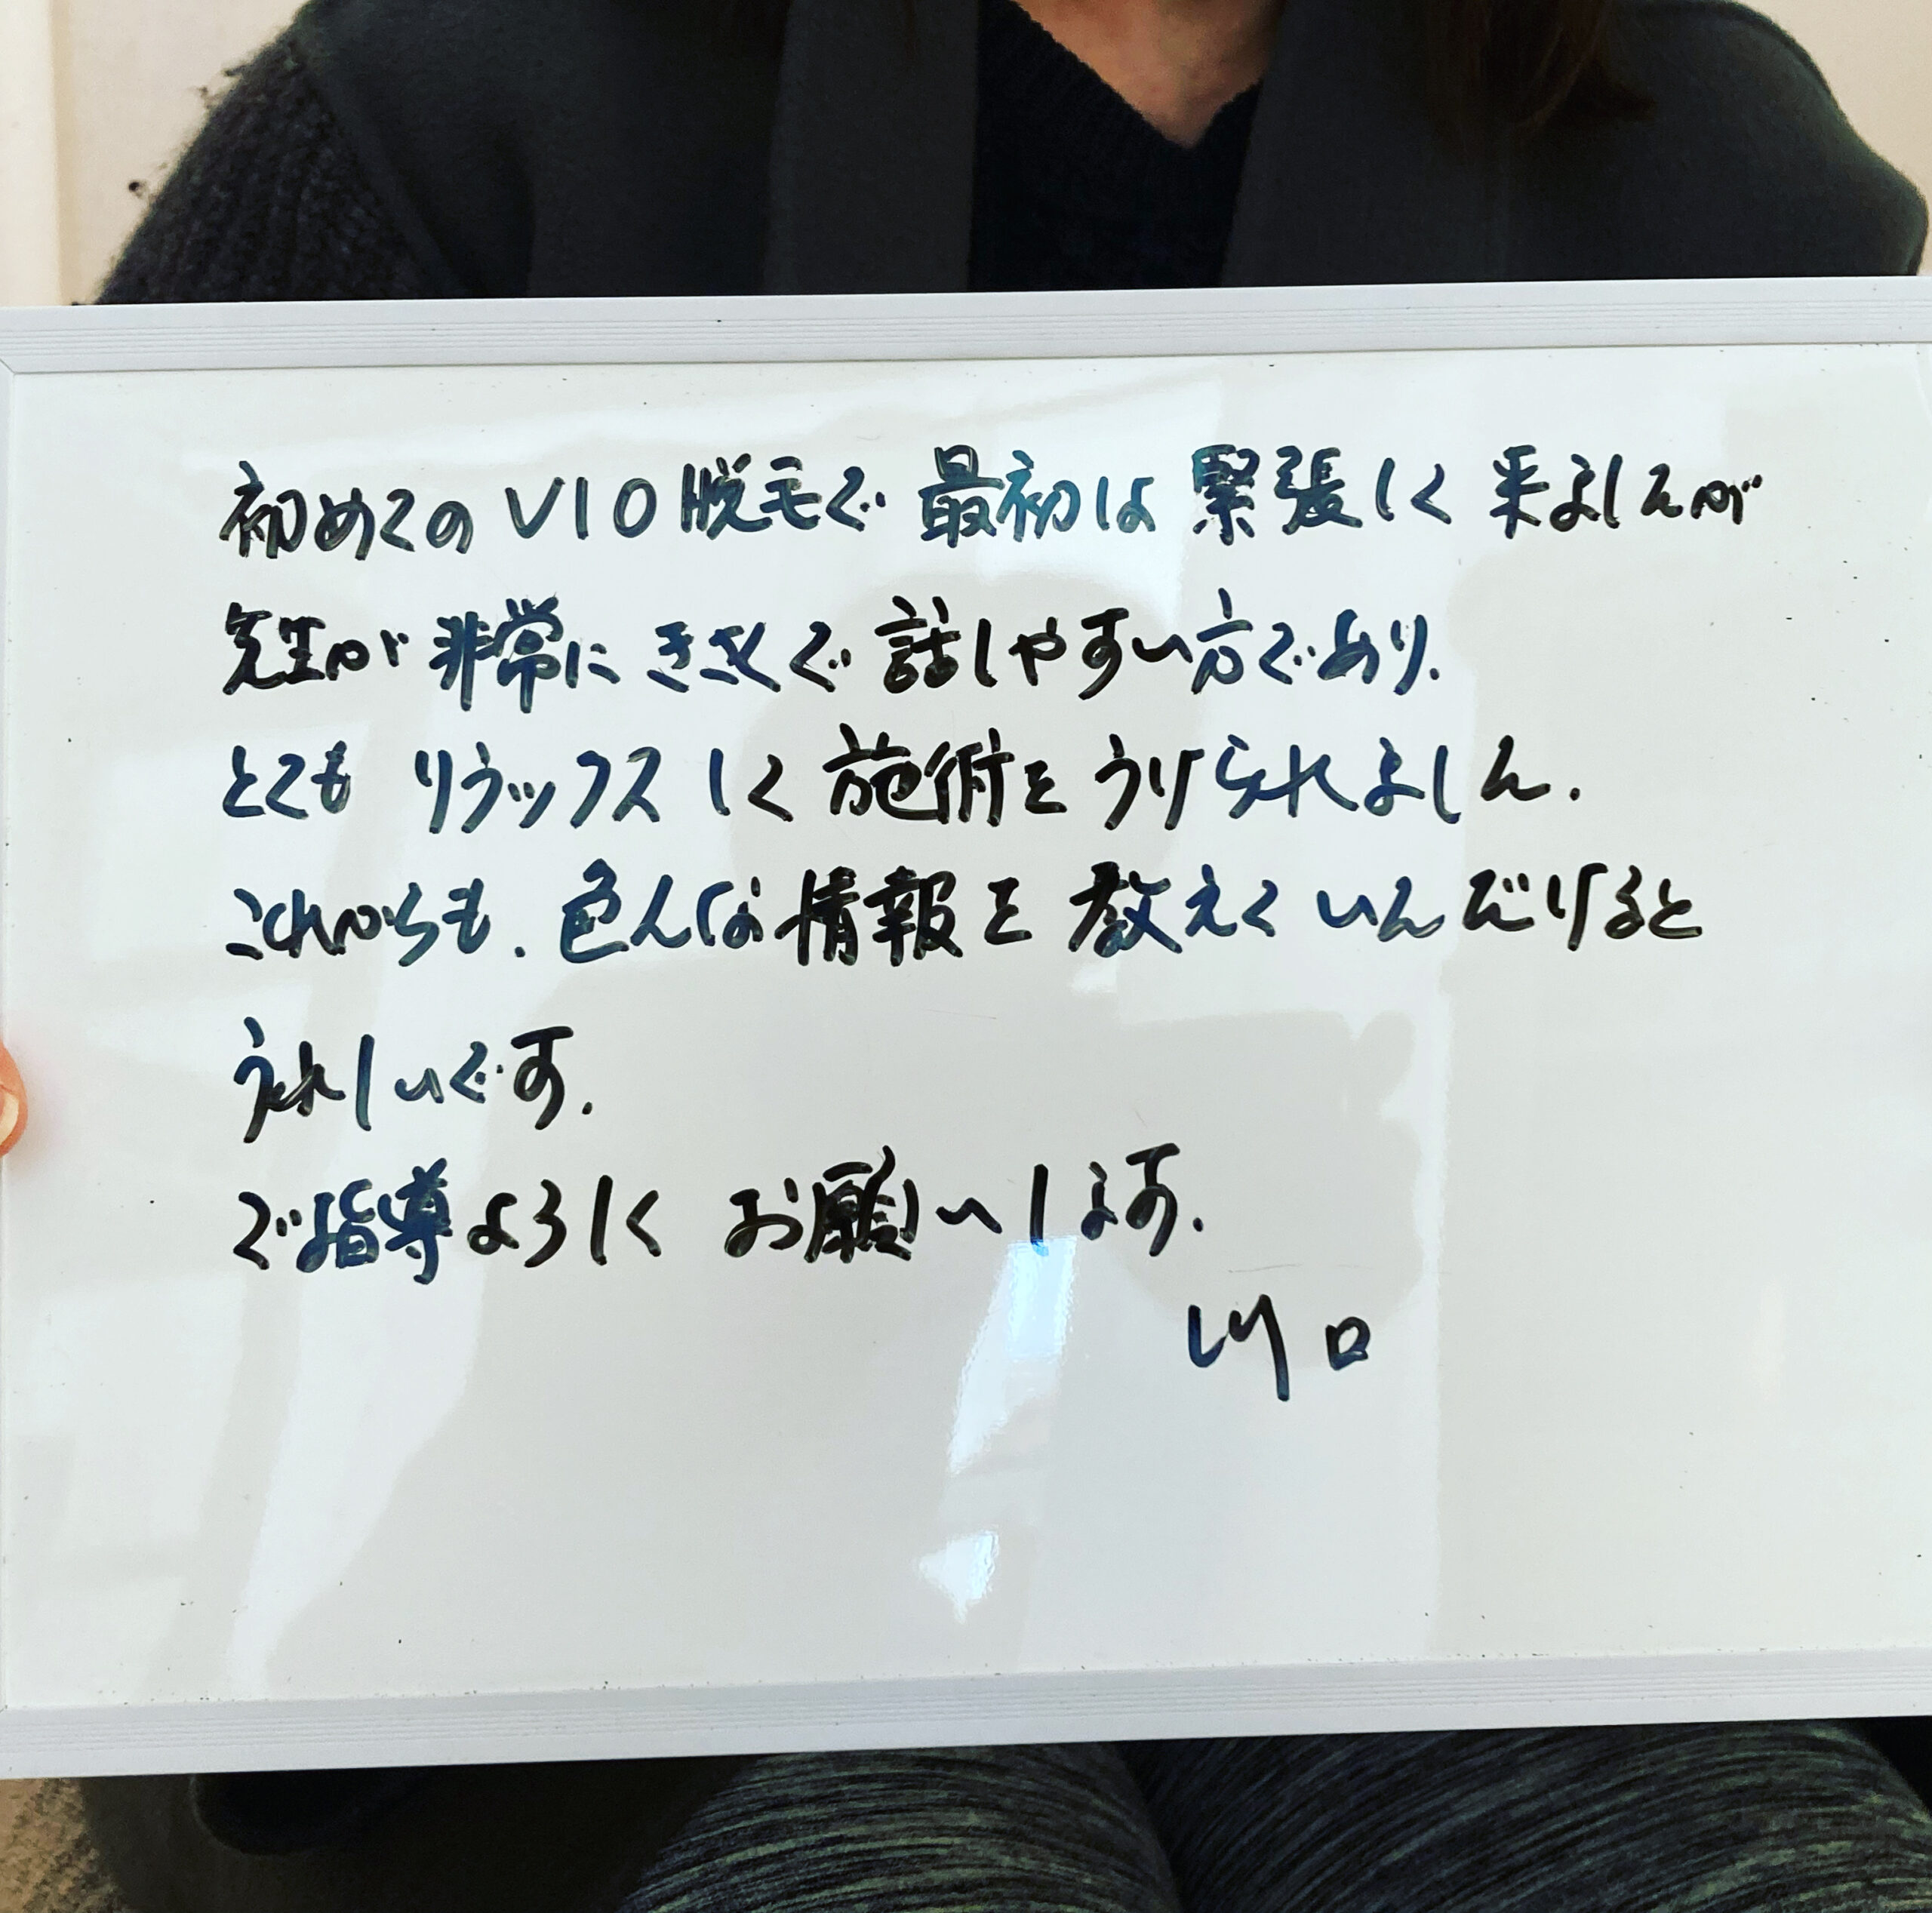 初めてのVIO脱毛で 最初は 緊張して 来ましたが
先生が 非常に きさくで 話しやすい方であり.
とても リラックスして 施術を うけられました.
これからも. 色んな情報を 教えて いただけると
うれしいです.
ご指導よろしく お願いします.
川口